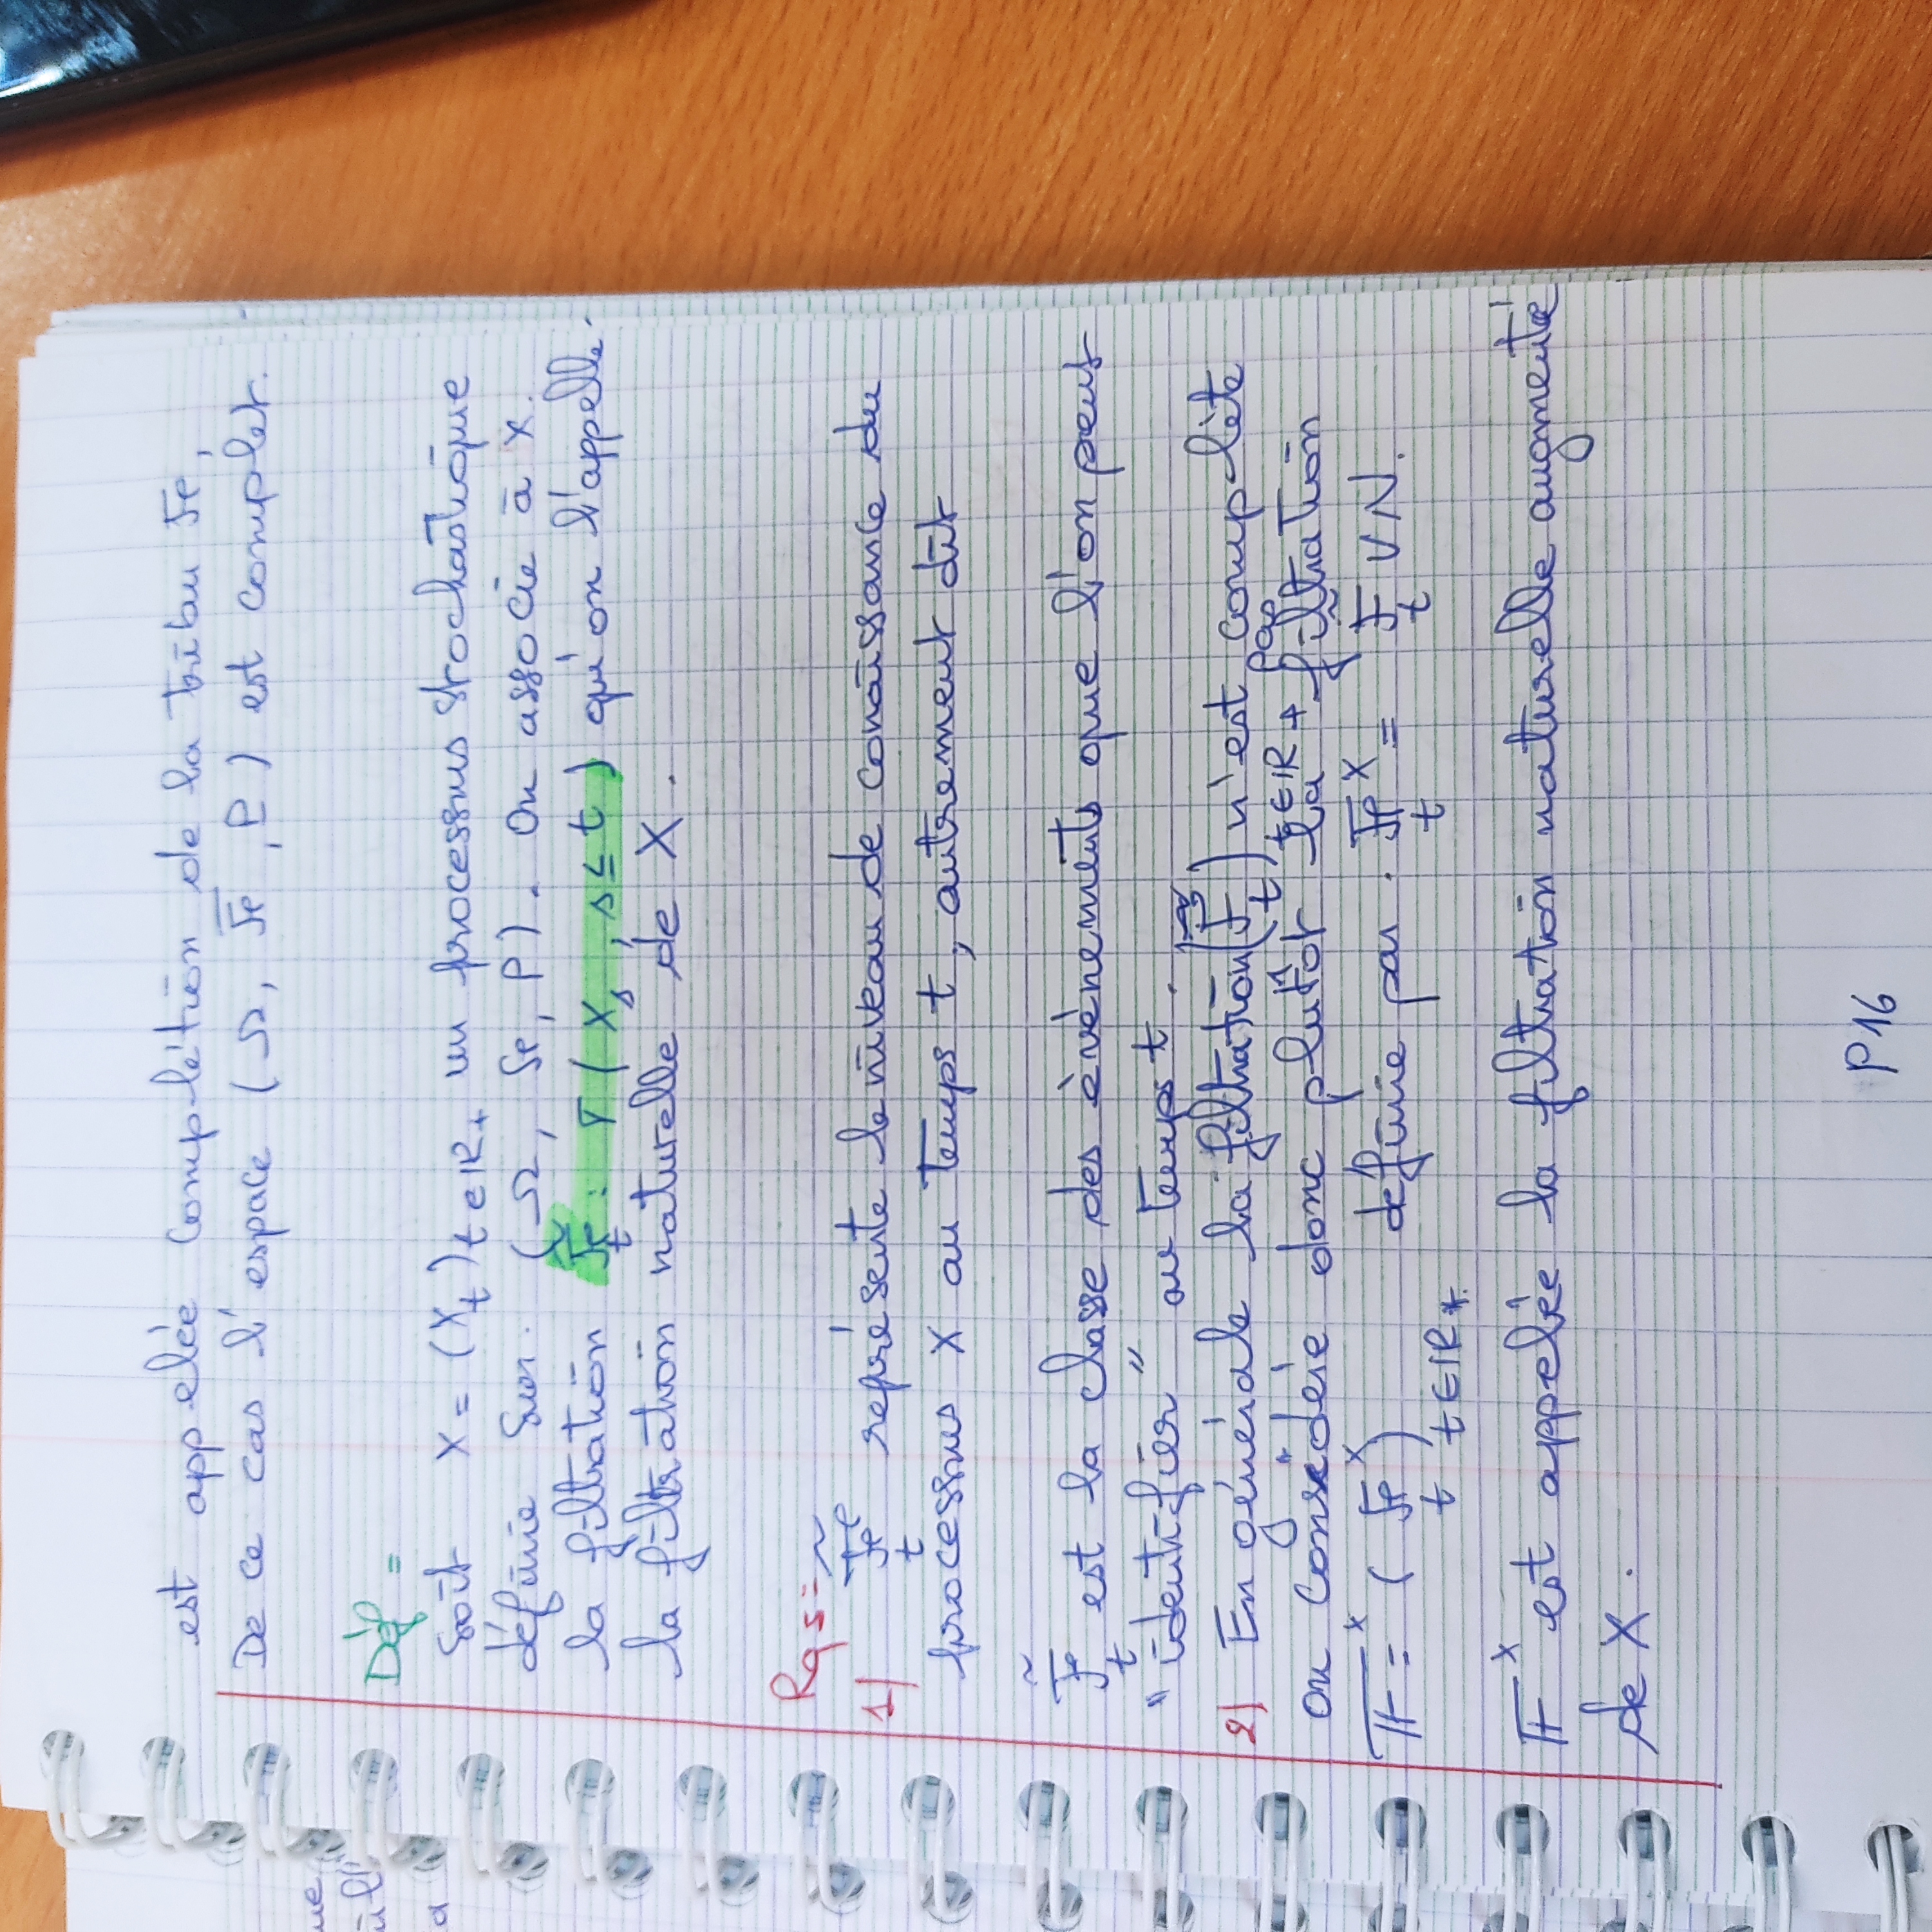 est appelée complétion de la tribu ℱ,
De ce cas l'espace (Ω, ℱ̅, P) est complet.
Déf =
Soit X = (X_t)_{t ∈ ℝ+} un processus stochastique
définie sur. (Ω, ℱ, P). On associe à X.
la filtration ℱ̃_t : σ(X_s, s ≤ t) qu'on l'appelle
la filtration naturelle de X.
Rqs =
1) ℱ̃_t représente le niveau de conaissance du
processus X au temps t, autrement dit
ℱ̃_t est la classe des évènements que l'on peut
"identifier" au temps t.
2) En générale la filtration (ℱ̃_t)_{t ∈ ℝ+} n'est pas complète
on considère donc plutôt la filtration
𝔽^X = (ℱ_t^X)_{t ∈ ℝ+} définie par. ℱ_t^X = ℱ̃_t ∨ N.
𝔽^X est appelée la filtration naturelle augmenté
de X.
P16